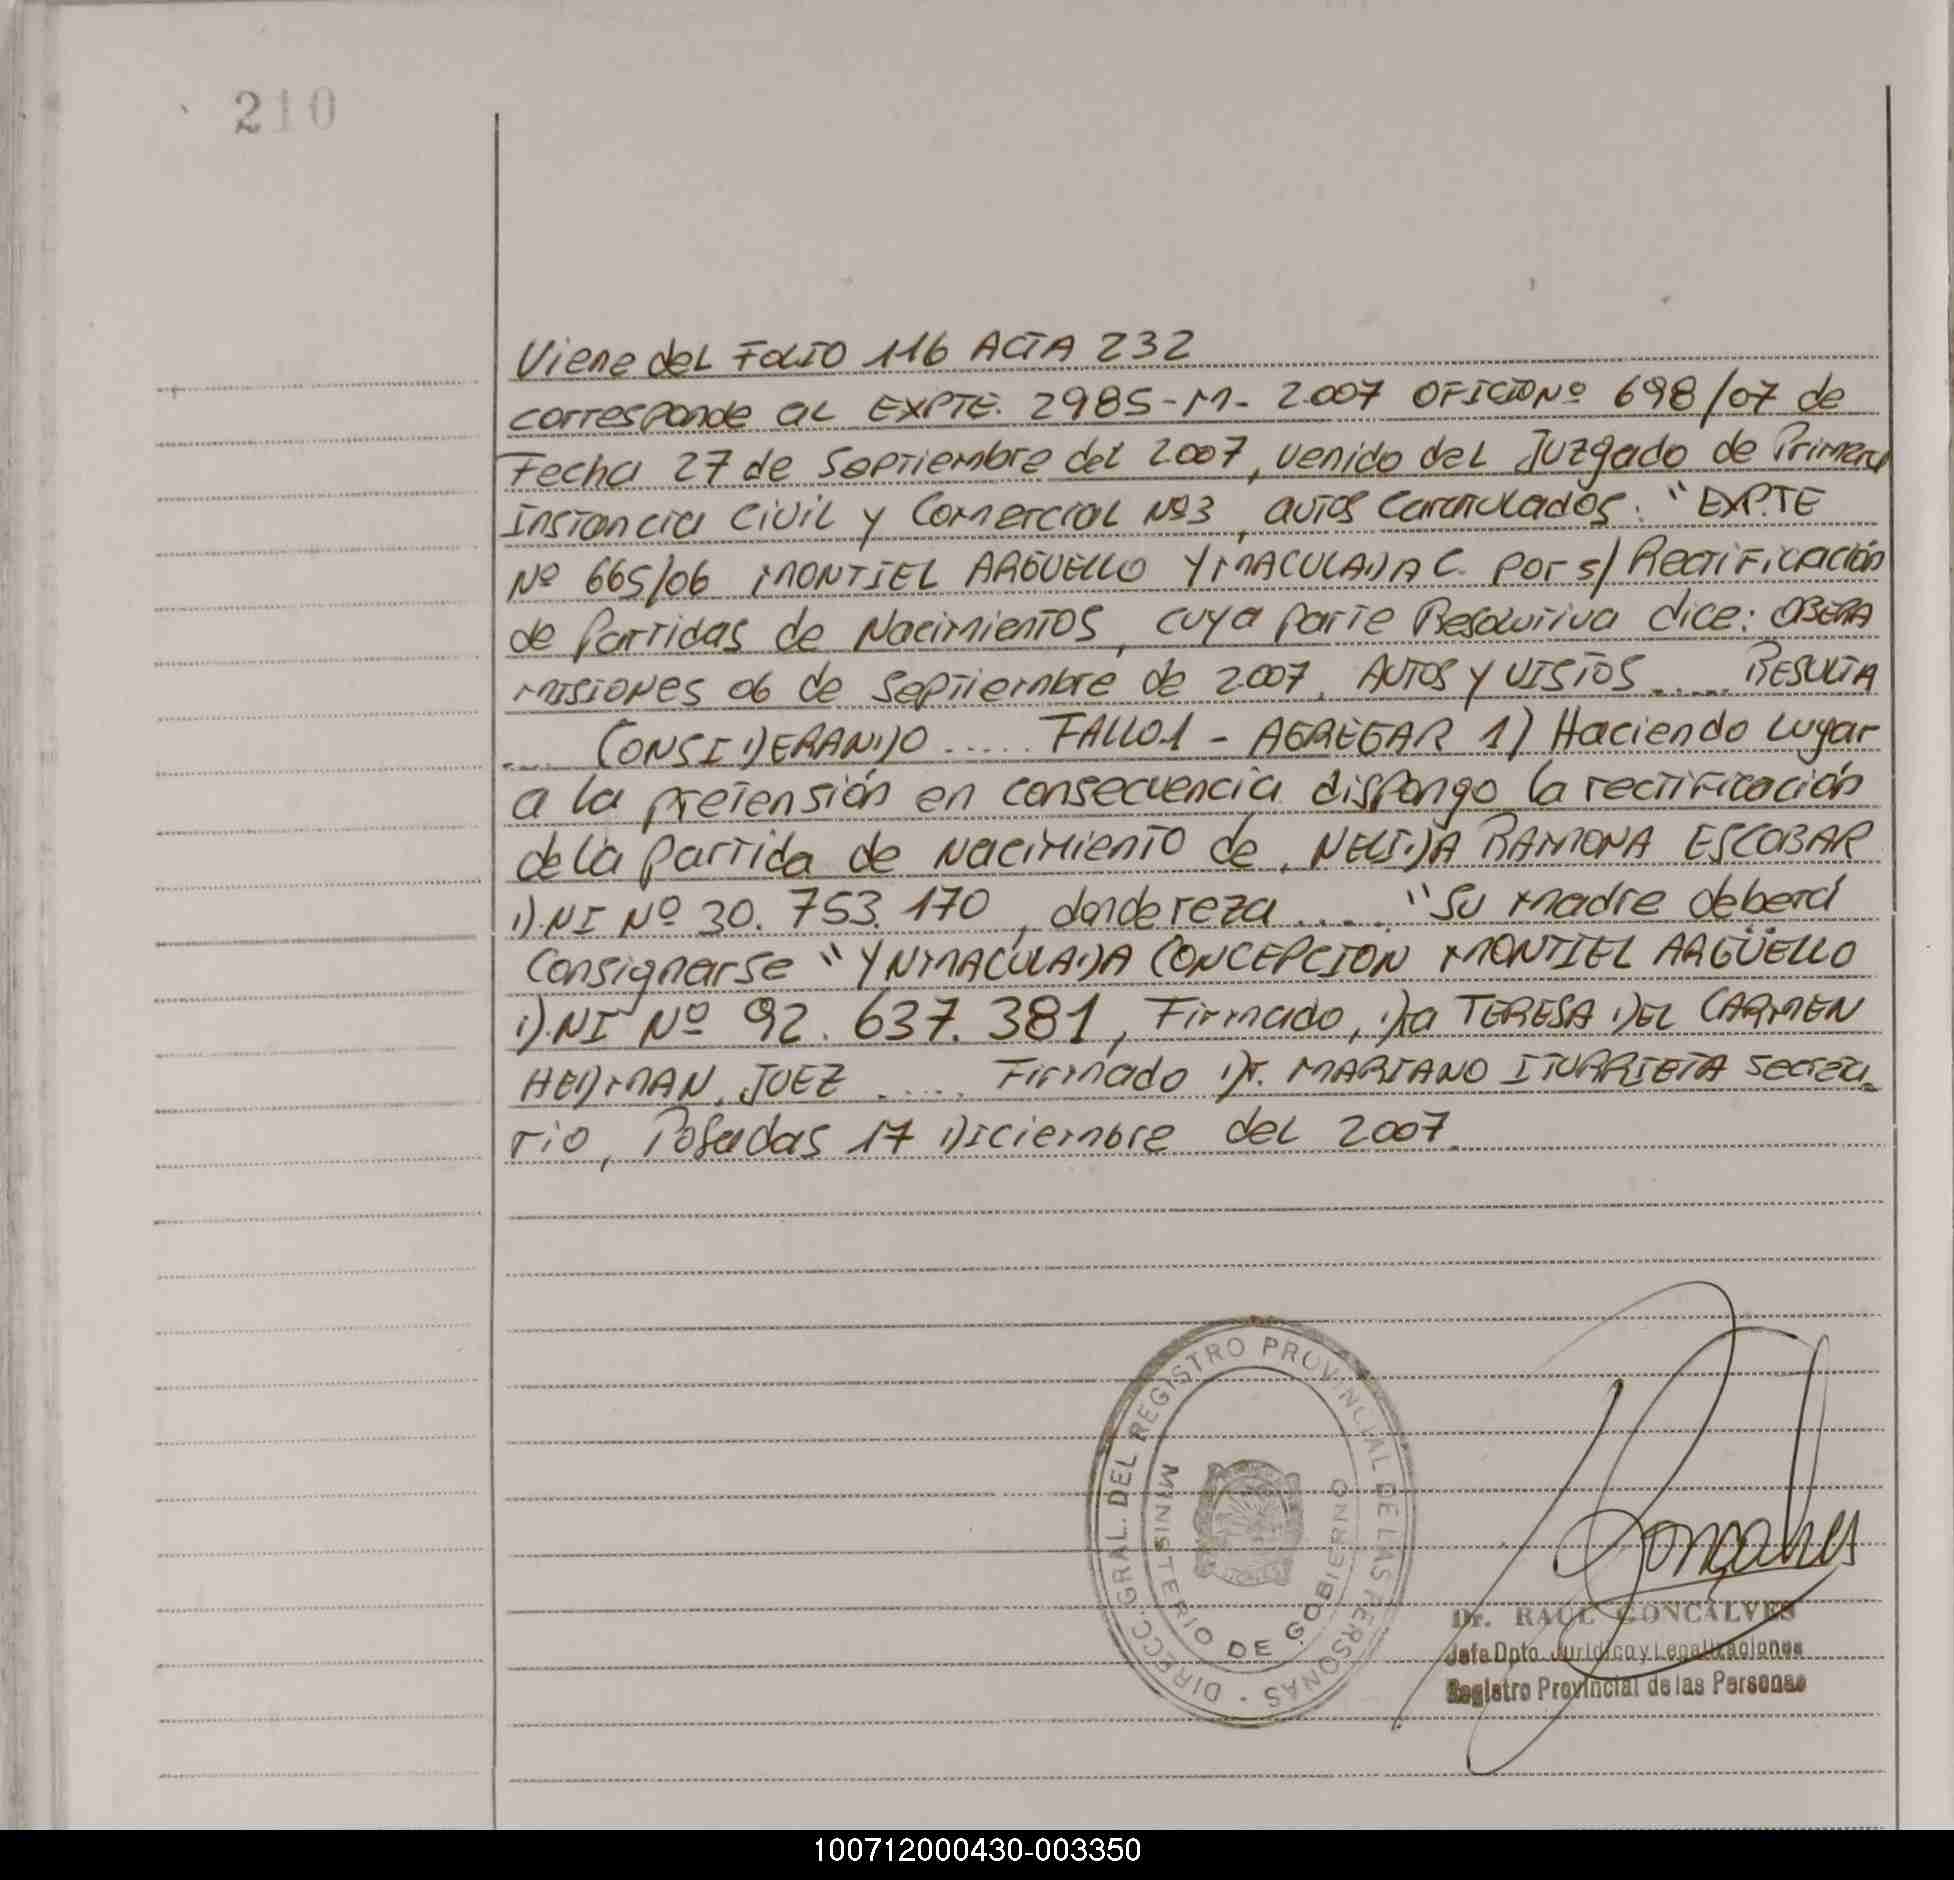 210
Viene del Folio 116 ACTA 232
corresponde al EXPTE. 2985-M- 2.007 OFICIO Nº 698/07 de
Fecha 27 de Septiembre del 2007, venido del Juzgado de Primera
Instancia Civil y Comercial Nº3, autos Caratulados: "EXPTE
Nº 665/06 MONTIEL ARGUELLO YMACULADA C. Por s/ Rectificación
de Partidas de Nacimientos, cuya parte Resolutiva dice: OBERA
MISIONES 06 de Septiembre de 2007. AUTOS Y VISTOS ..... RESULTA
.... CONSIDERANDO ..... FALLO1 - AGREGAR 1) Haciendo lugar
a la pretensión en consecuencia dispongo la rectificación
de la partida de Nacimiento de, NELIDA RAMONA ESCOBAR
D.NI Nº 30.753.170, donde reza ..... "Su madre deberá
Consignarse "YNMACULADA CONCEPCION MONTIEL ARGÜELLO
D.NI Nº 92.637.381, Firmado, Dra TERESA DEL CARMEN
HEDMAN, JUEZ ..... Firmado Dr. MARIANO ITURRIETA Secreta_
rio, Posadas 17 Diciembre del 2007.
DIRECC. GRAL. DEL REGISTRO PROVINCIAL DE LAS PERSONAS
MINISTERIO DE GOBIERNO
Gonçalves
Dr. RAUL GONCALVES
Jefe Dpto. Jurídico y Legalizaciones
Registro Provincial de las Personas
100712000430-003350